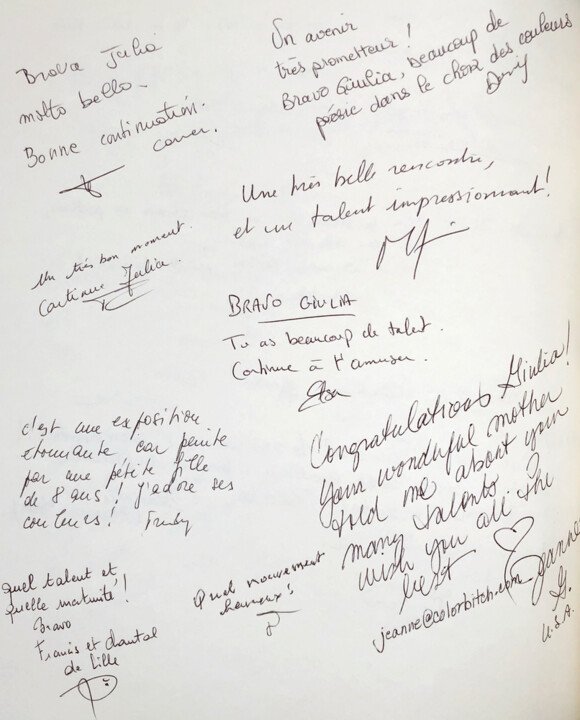 Brava Julia
molto bello -
Bonne continuation.
Un avenir
très prometteur !
Bravo Giulia, beaucoup de
poésie dans le choix des couleurs
Une très belle rencontre,
et un talent impressionnant !
Un très bon moment.
Continue Julia.
BRAVO GIULIA
Tu as beaucoup de talent.
Continue à t'amuser.
Elsa
c'est une exposition
étonnante car peinte
par une pétite fille
de 8 ans ! j'adore ses
couleurs !
Congratulations Giulia!
Your wonderful mother
told me about your
many talents. I
wish you all the
best ♡
Jeanne
G.
U.S.A.
jeanne@colorbitch.com
Quel talent et
quelle maturité !
Bravo
Francis et Chantal
de Lille
Quel mouvement
heureux !